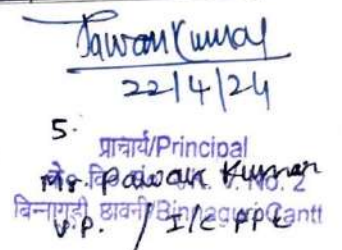 Pawan Kumar
22/4/24
5.
प्राचार्य/Principal
Mr. Pawan Kumar No. 2
बिन्नागुड़ी छावनी/Binnaguri Cantt
V.P. / I/C PPC